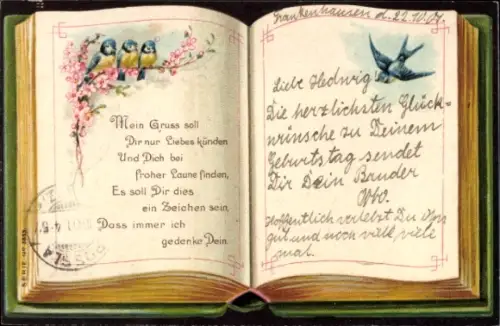 Frankenhausen d. 22.10.07.
Mein Gruss soll
Dir nur Liebes künden
Und Dich bei
froher Laune finden,
Es soll Dir dies
ein Zeichen sein,
Dass immer ich
gedenke Dein.
Liebe Hedwig!
Die herzlichsten Glück-
wünsche zu Deinem
Geburtstag sendet
Dir Dein Bruder
Otto.
Hoffentlich verlebst Du
gut und noch viele, viele
mal.
SERIE